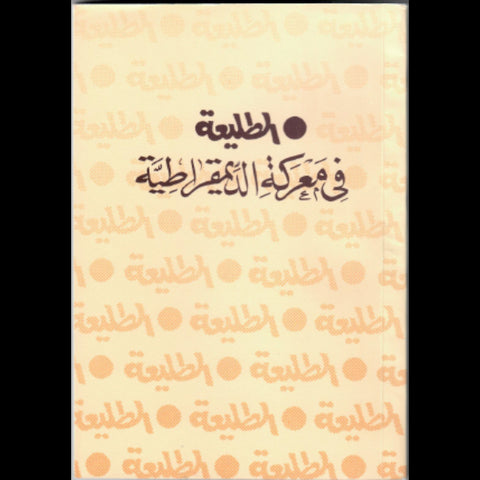 الطليعة
في معركة الديمقراطية